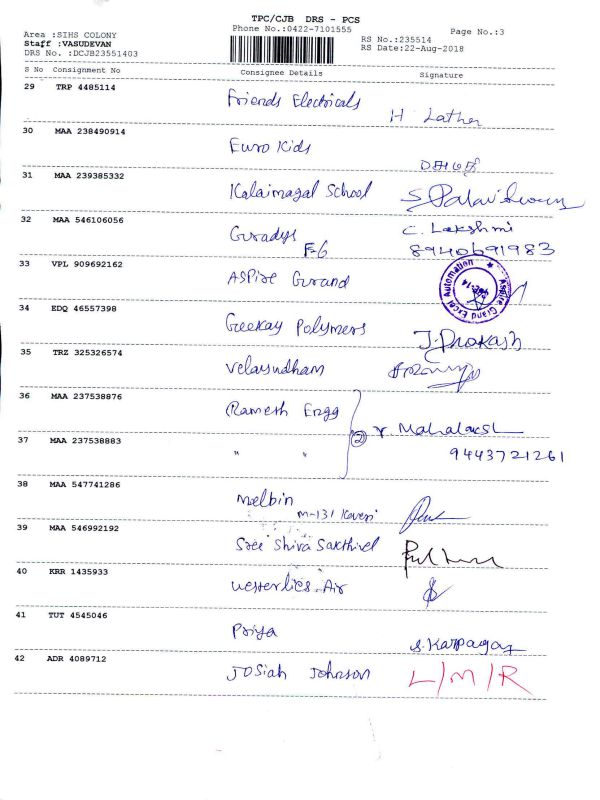 TPC/CJB DRS - PCS
Phone No.:0422-7101555
Page No.:3
Area :SIHS COLONY
RS No.:235514
Staff :VASUDEVAN
RS Date:22-Aug-2018
DRS No. :DCJB23551403
S No Consignment No Consignee Details Signature
29 TRP 4485114
Friends Electricals
H Lather
30 MAA 238490914
Euro Kids
31 MAA 239385332
Kalaimagal School
32 MAA 546106056
Guradys C. Lakshmi
F-6 8940691983
33 VPL 909692162
Aspire Grand
Aspire Grand Excel Automation
34 EDQ 46557398
Geekay Polymers
J. Prakash
35 TRZ 325326574
Velayudham
36 MAA 237538876
Ramesh Engg
② Mahalaksh
37 MAA 237538883
" " 9443721261
38 MAA 547741286
Melbin
M-131 Kaveri
39 MAA 546992192
Sree Shiva Sakthivel
40 KRR 1435933
Westerlies Air
41 TUT 4545046
Priya
S. Karpagam
42 ADR 4089712
Josiah Johnson L/M/R